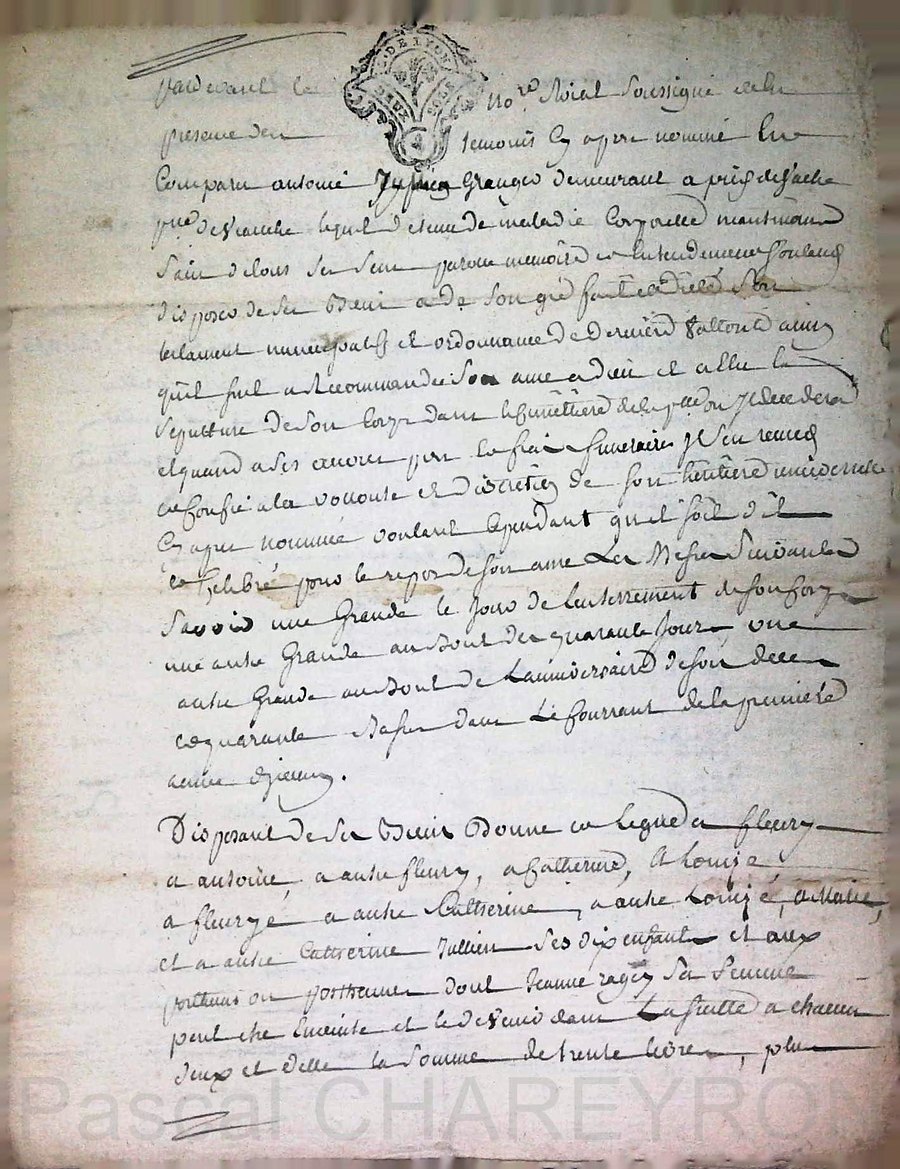 G. DE LYON
DEUX SOLS
pardevant le no.re Roial soussigné et en
presence des temoins cy apres nommé fut
comparu antoine Jullien Granger demeurant a
lequel detenu de maladie corporelle maintenant
sain de tous ses sens parole memoire et entendement voulant
disposer de ses biens a de son gré fait et dicté son
testament nuncupatif et ordonnance de derniere vollonté ainsy
quil suit a Recommandé son ame a dieu et a elu la
sepulture de son corps dans le cimetiere de la p.sse ou Jl decedera
et quand a ses œuvres pies et frais funeraires Jl s'en remet
et confie a la vollonté et discretion de son heritiere universelle
cy apres nommée voulant cependant qu'il soit dit
et celebré pour le repos de son ame Les Messes suivantes
savoir une Grande le Jour de l'enterrement de son corps
une autre Grande au bout des quarante Jours, une
autre Grande au bout de L'anniversaire de son deces
et quarante Messes dans Le Courrant de la premiere
année
Disposant de ses biens Donne et legue a fleury
a antoine, a autre fleury, a Catherine, A Louise
a fleuryé a autre Catherine, a autre Louise, a Marie,
et a autre Catherine Jullien ses dix enfants et aux
posthume ou posthumes dont Jeanne ragey sa femme
peut etre Enceinte et le devenir dans La suitte a chacun
deux et delle la somme de trente livres, plus
Pascal CHAREYRON